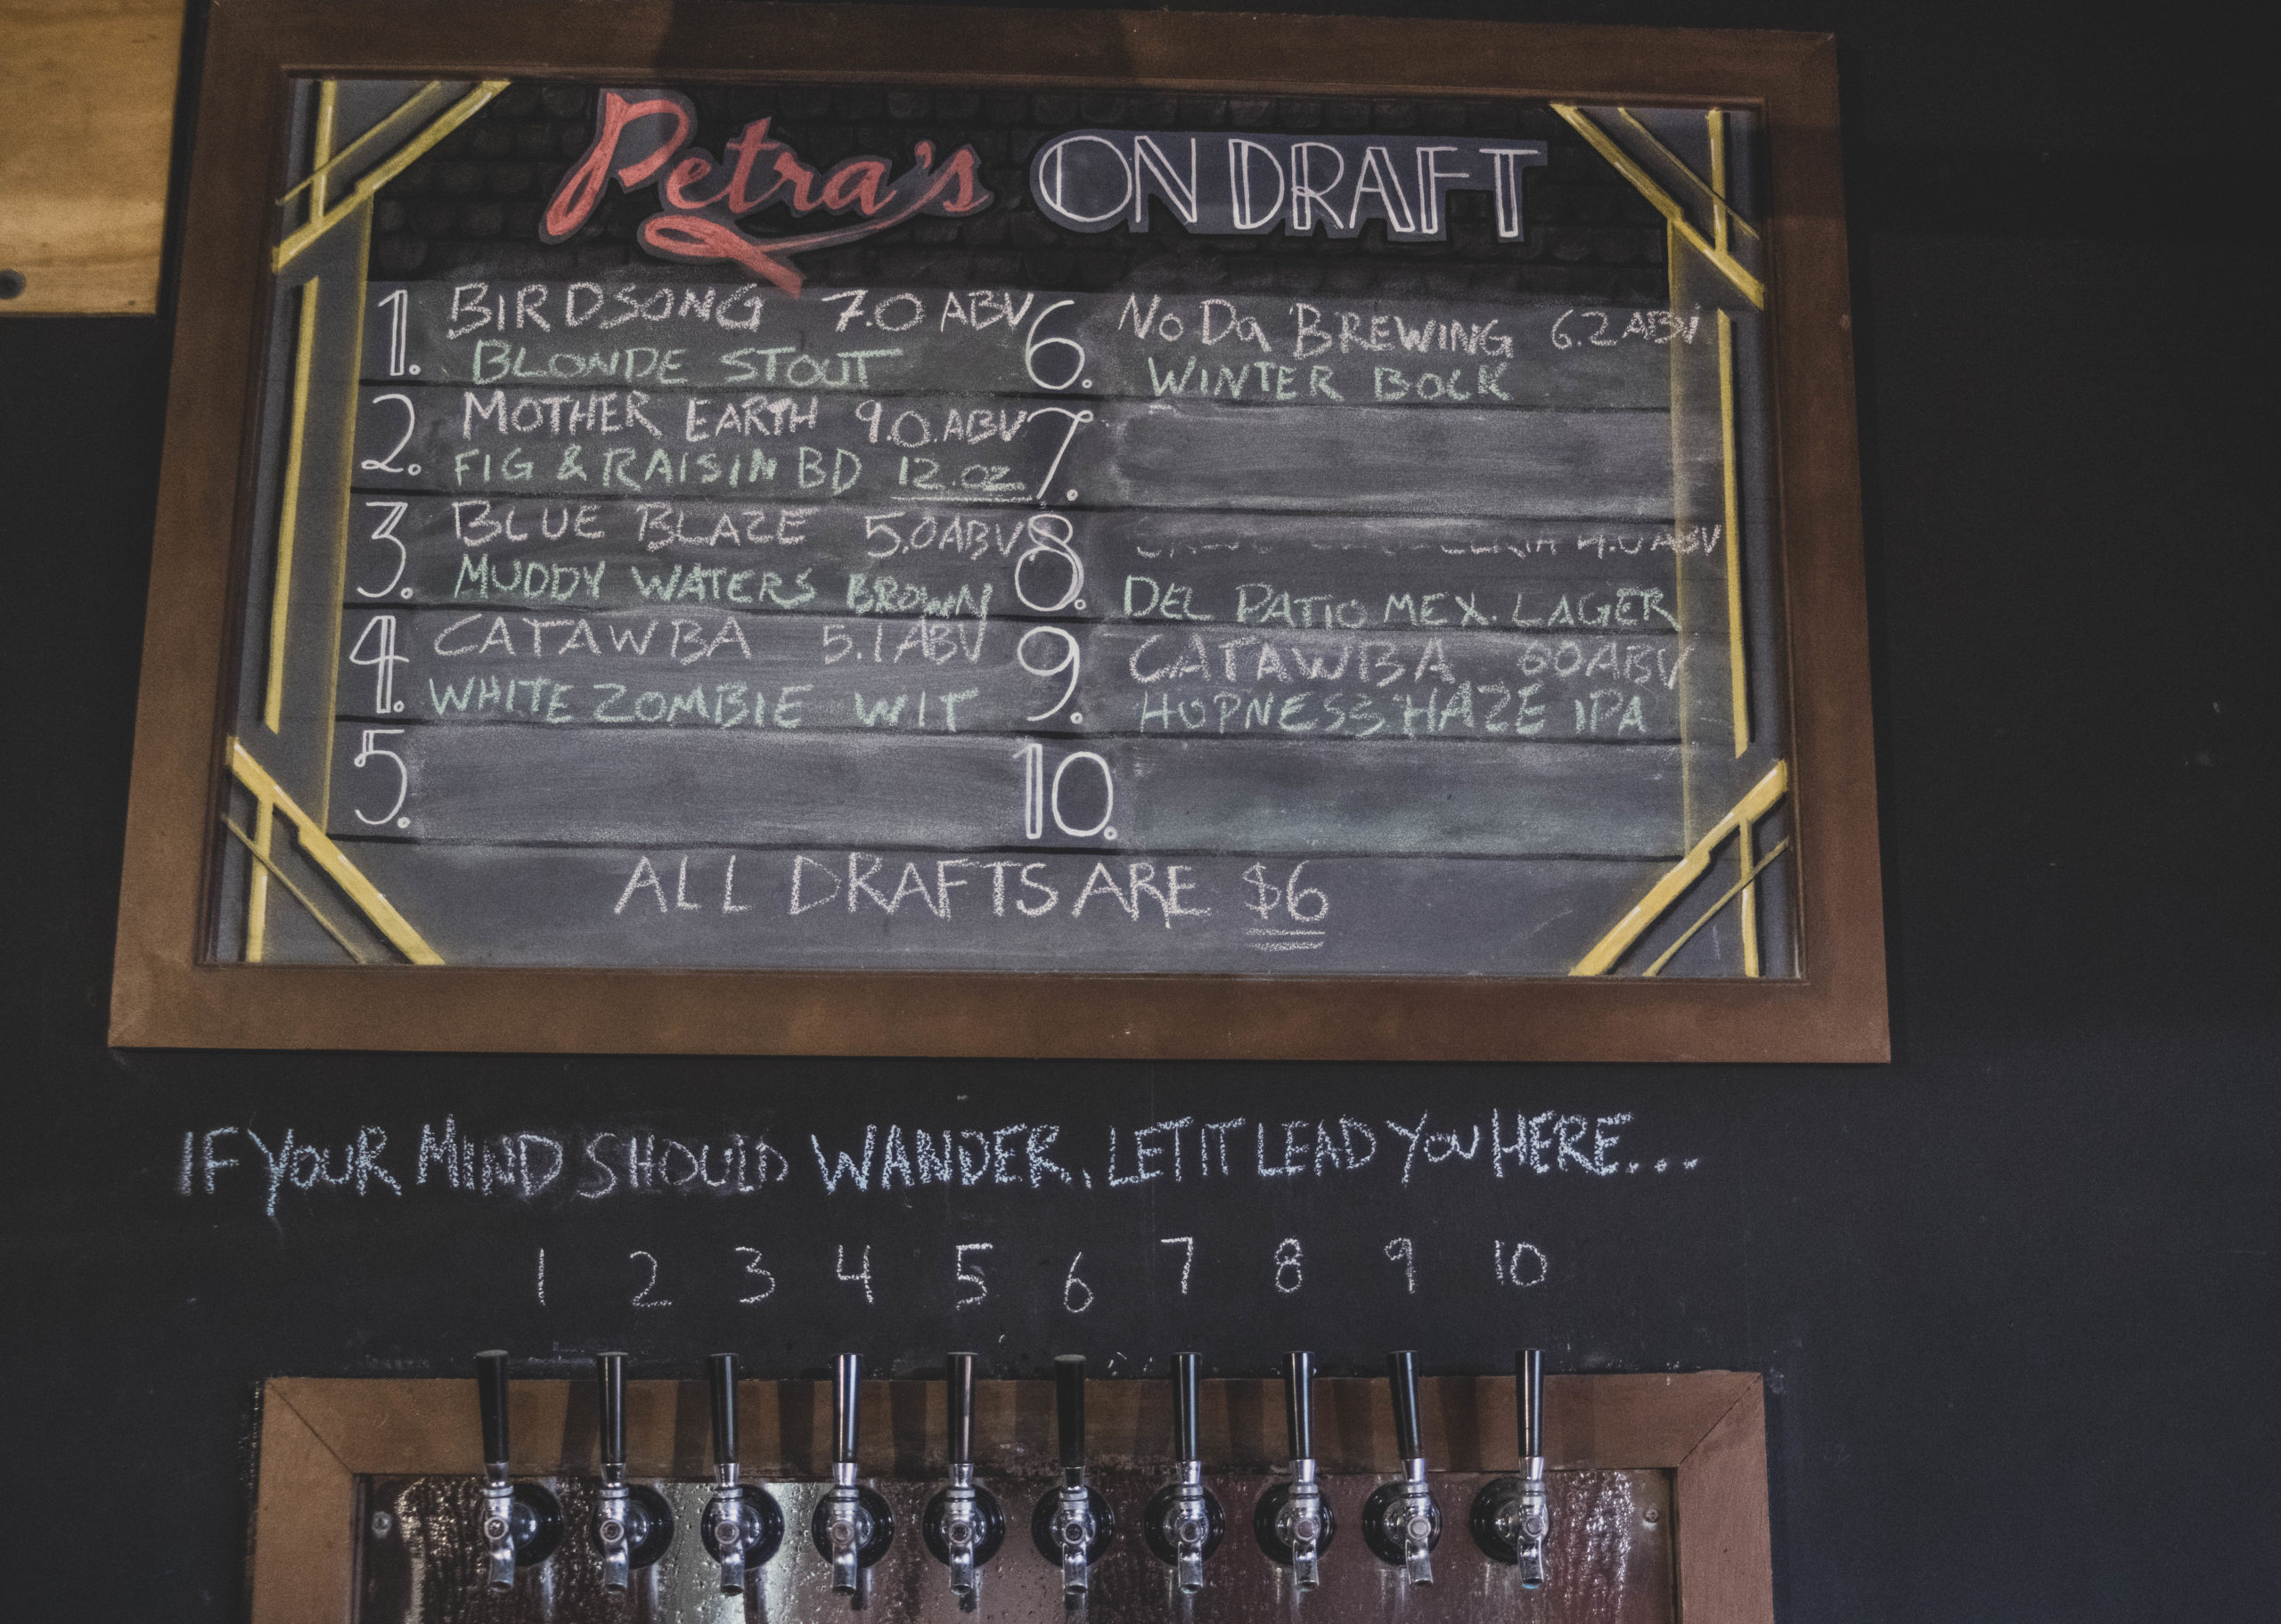 Petra's ON DRAFT
1. BIRDSONG 7.0 ABV
BLONDE STOUT
2. MOTHER EARTH 9.0.ABV
FIG & RAISIN BD 12.OZ
3. BLUE BLAZE 5.0ABV
MUDDY WATERS BROWN
4. CATAWBA 5.1 ABV
WHITE ZOMBIE WIT
5.
6. NoDa BREWING 6.2 ABV
WINTER BOCK
7.
8. ABV
DEL PATIO MEX. LAGER
9. CATAWBA 60ABV
HOPNESS HAZE IPA
10.
ALL DRAFTS ARE $6
IF YOUR MIND SHOULD WANDER, LET IT LEAD YOU HERE...
1 2 3 4 5 6 7 8 9 10